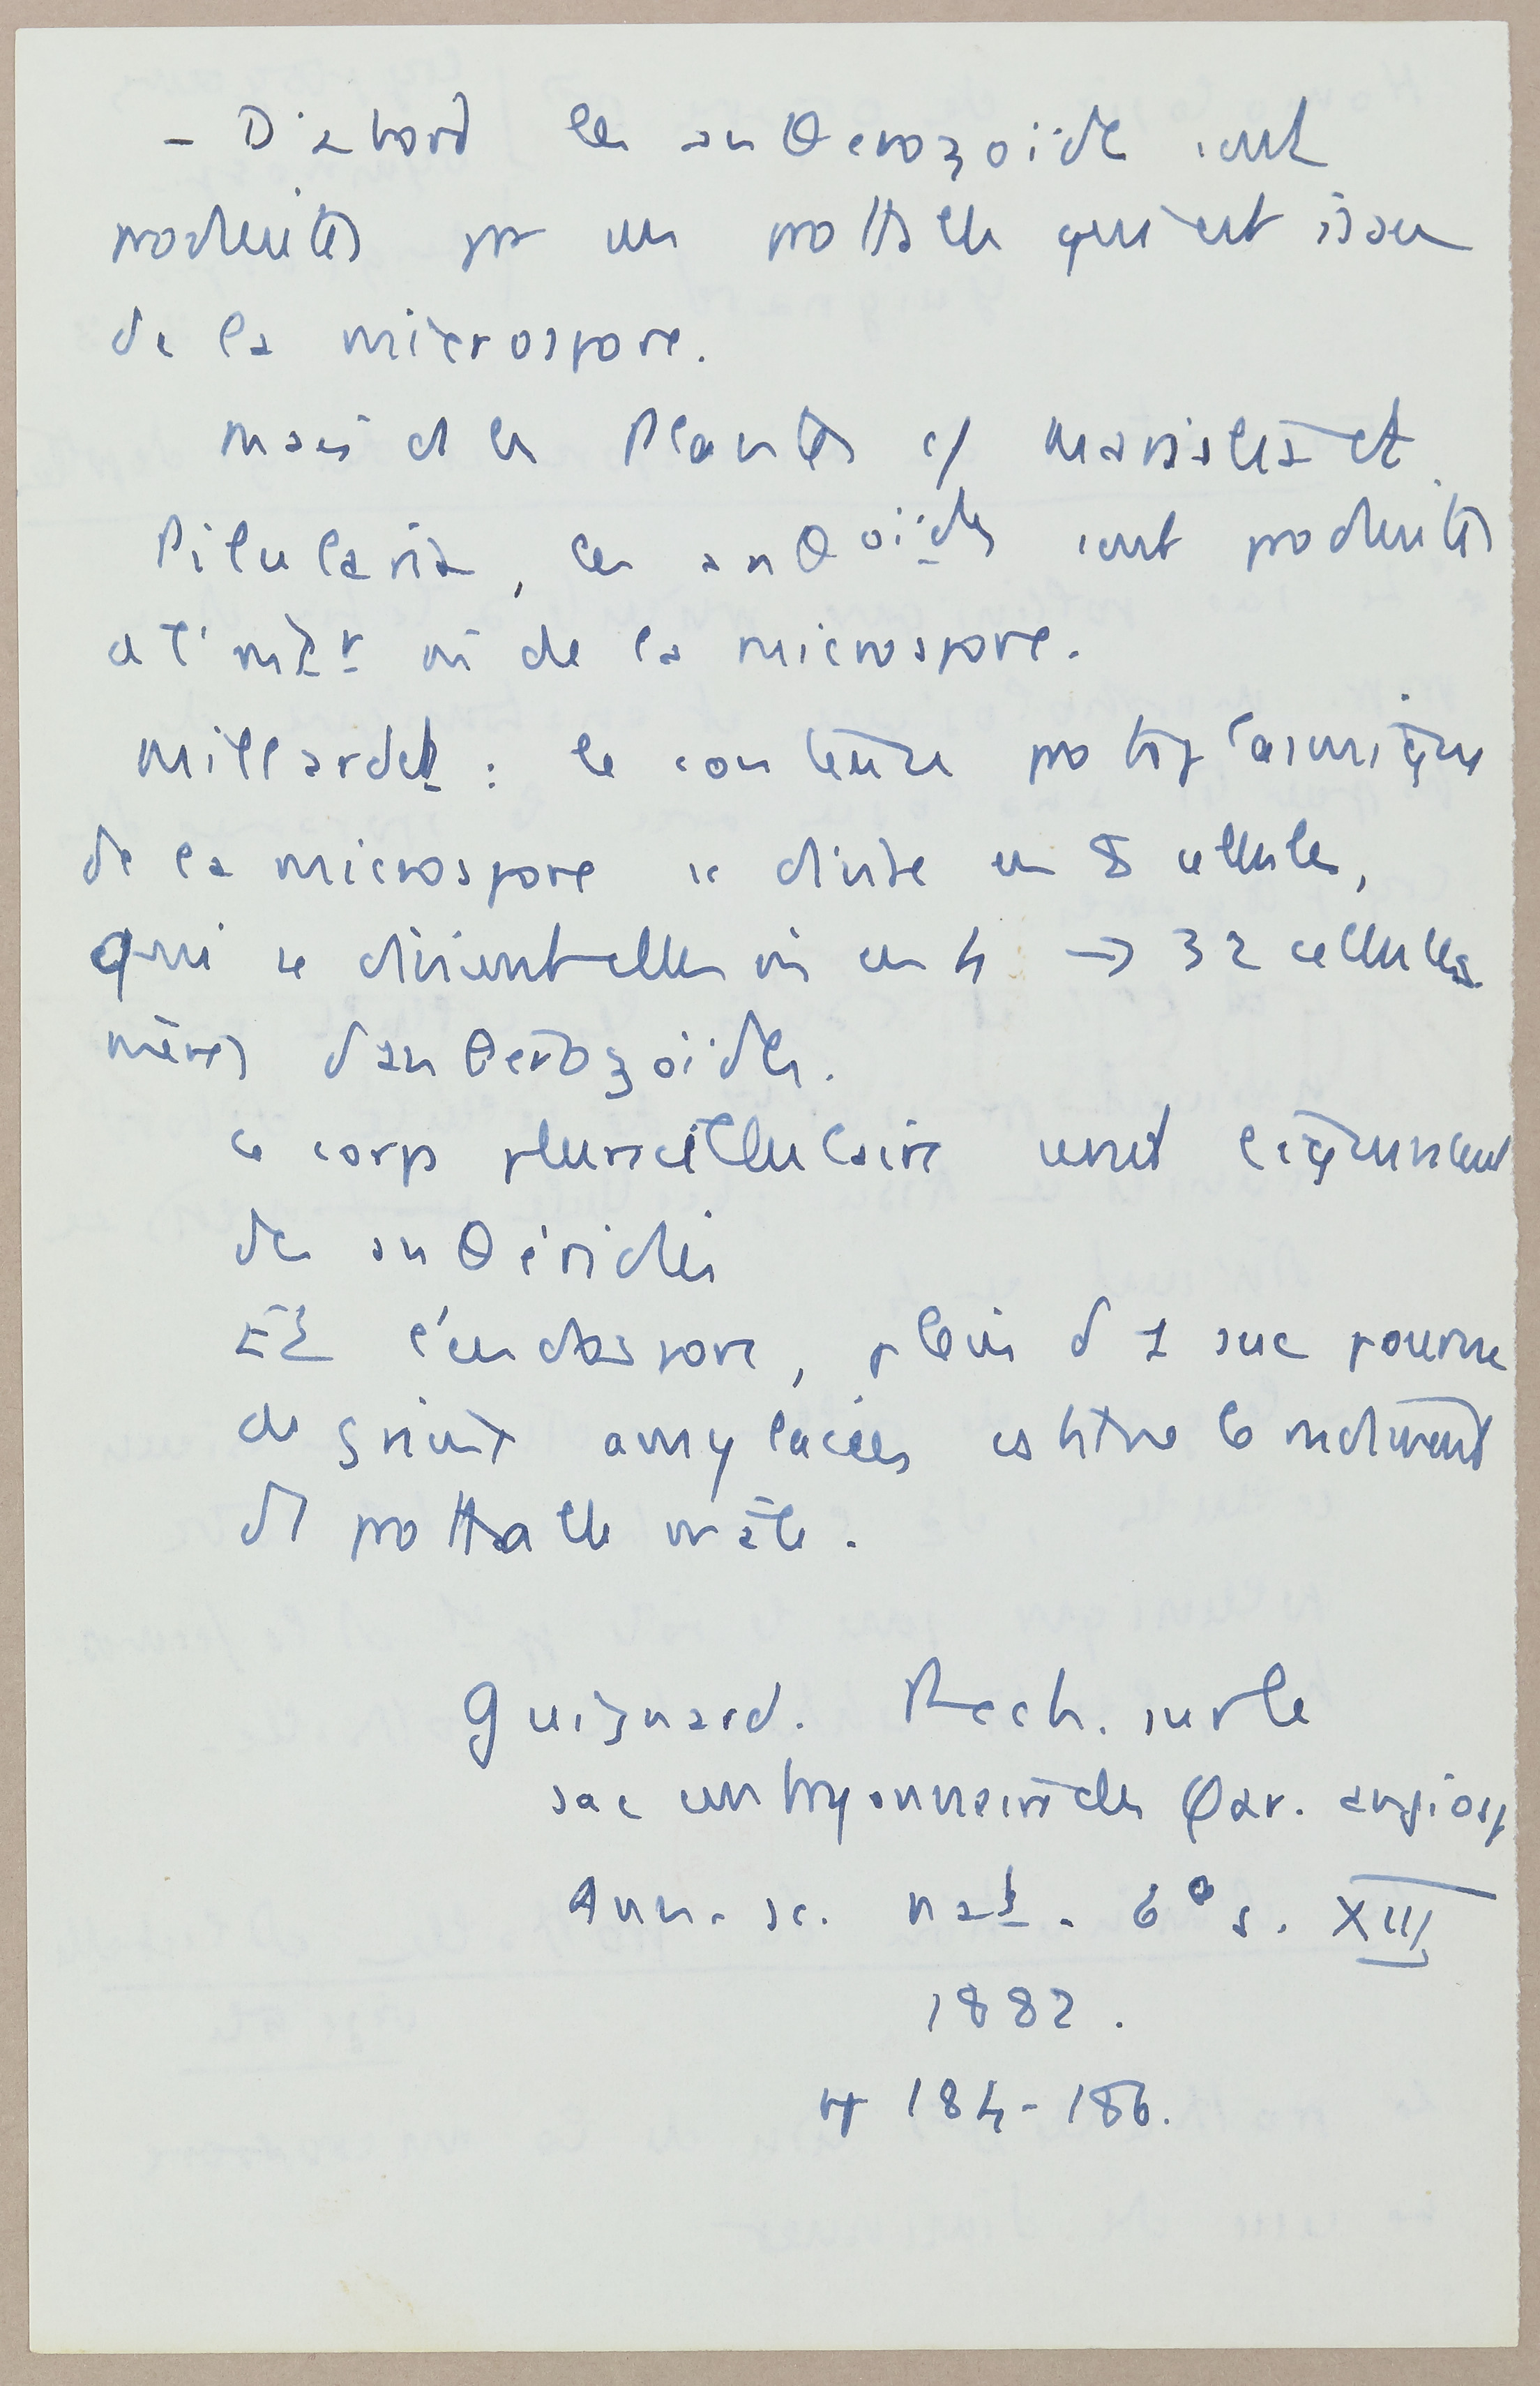 - D'abord les anθerozoïde sont
produites par un prothalle qui est issu
de la microspore.
Mais ds les Plantes c/ Marsilia et
Pilularia, les anθoïdes sont produites
à l'intr m de la microspore.
Millardet : le contenu protoplasmique
de la microspore se divise en 8 cellules,
qui se divisent elles m en 4 → 32 cellules
mères d'anθerozoïdes.
Ce corps pluricellulaire serait l'équivalent
des anθéridies
Et l'endospore, plein d 1 suc pourvu
de grains amylacées constitue le rudiment
d1 prothalle mâle.
Guignard. Rech. sur le
sac embryonnaire des φar. angiosp
Ann. sc. nat. 6e s. XIII
1882.
pp 184-186.